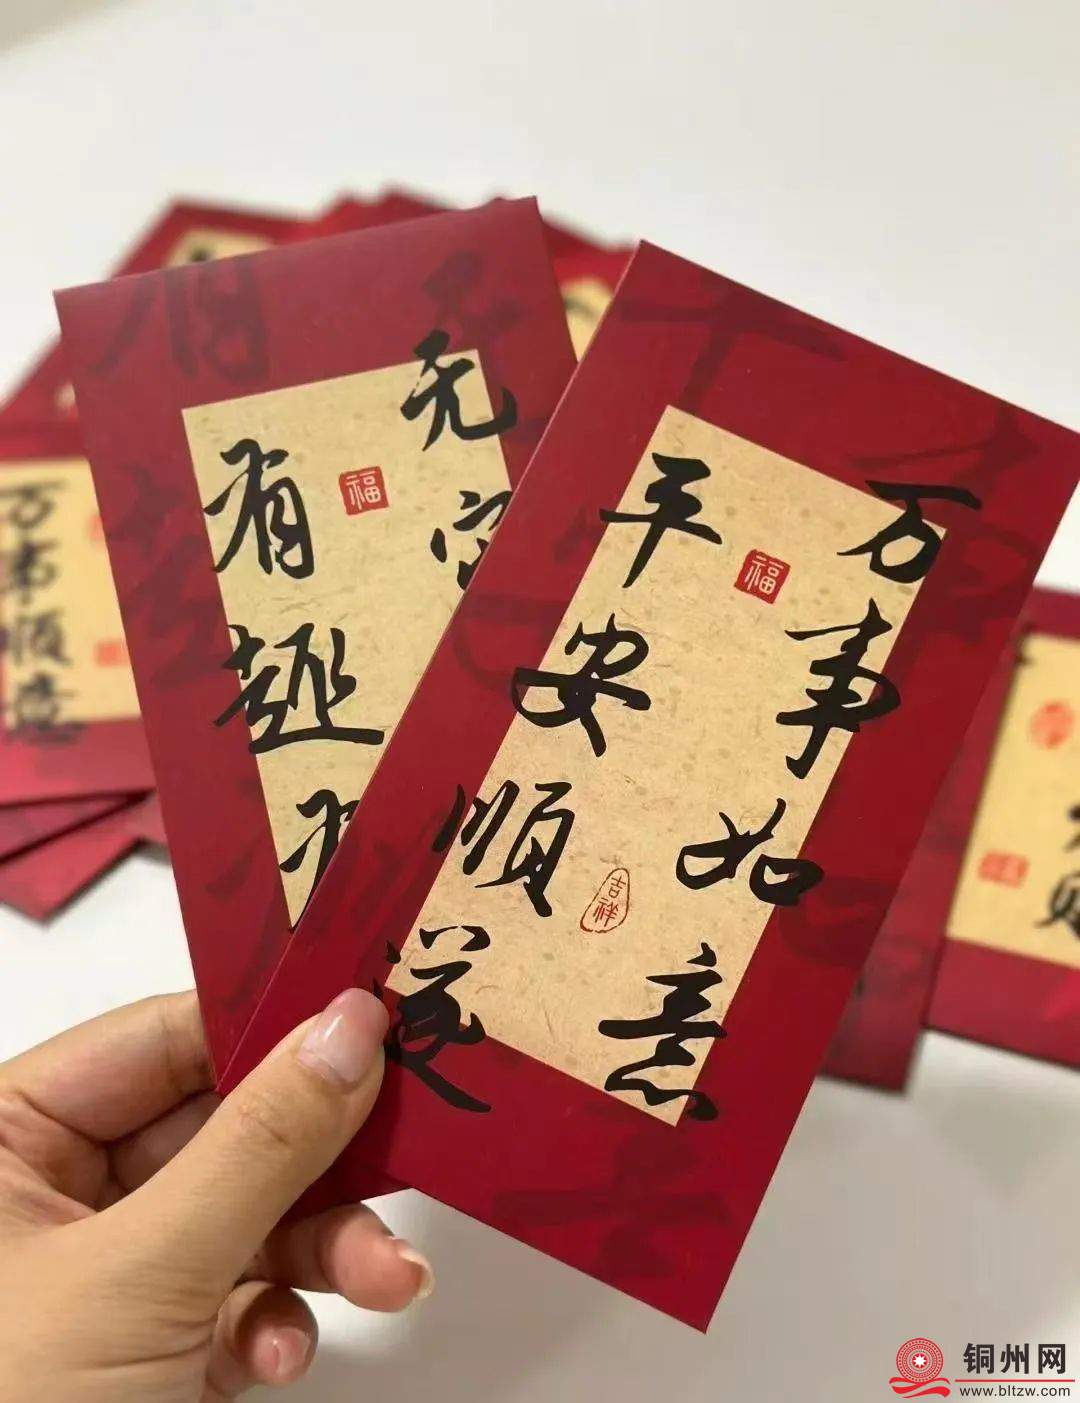 万事如意
平安顺遂
福
吉祥
无
有趣
福
万事顺意
铜州网
www.bltzw.com